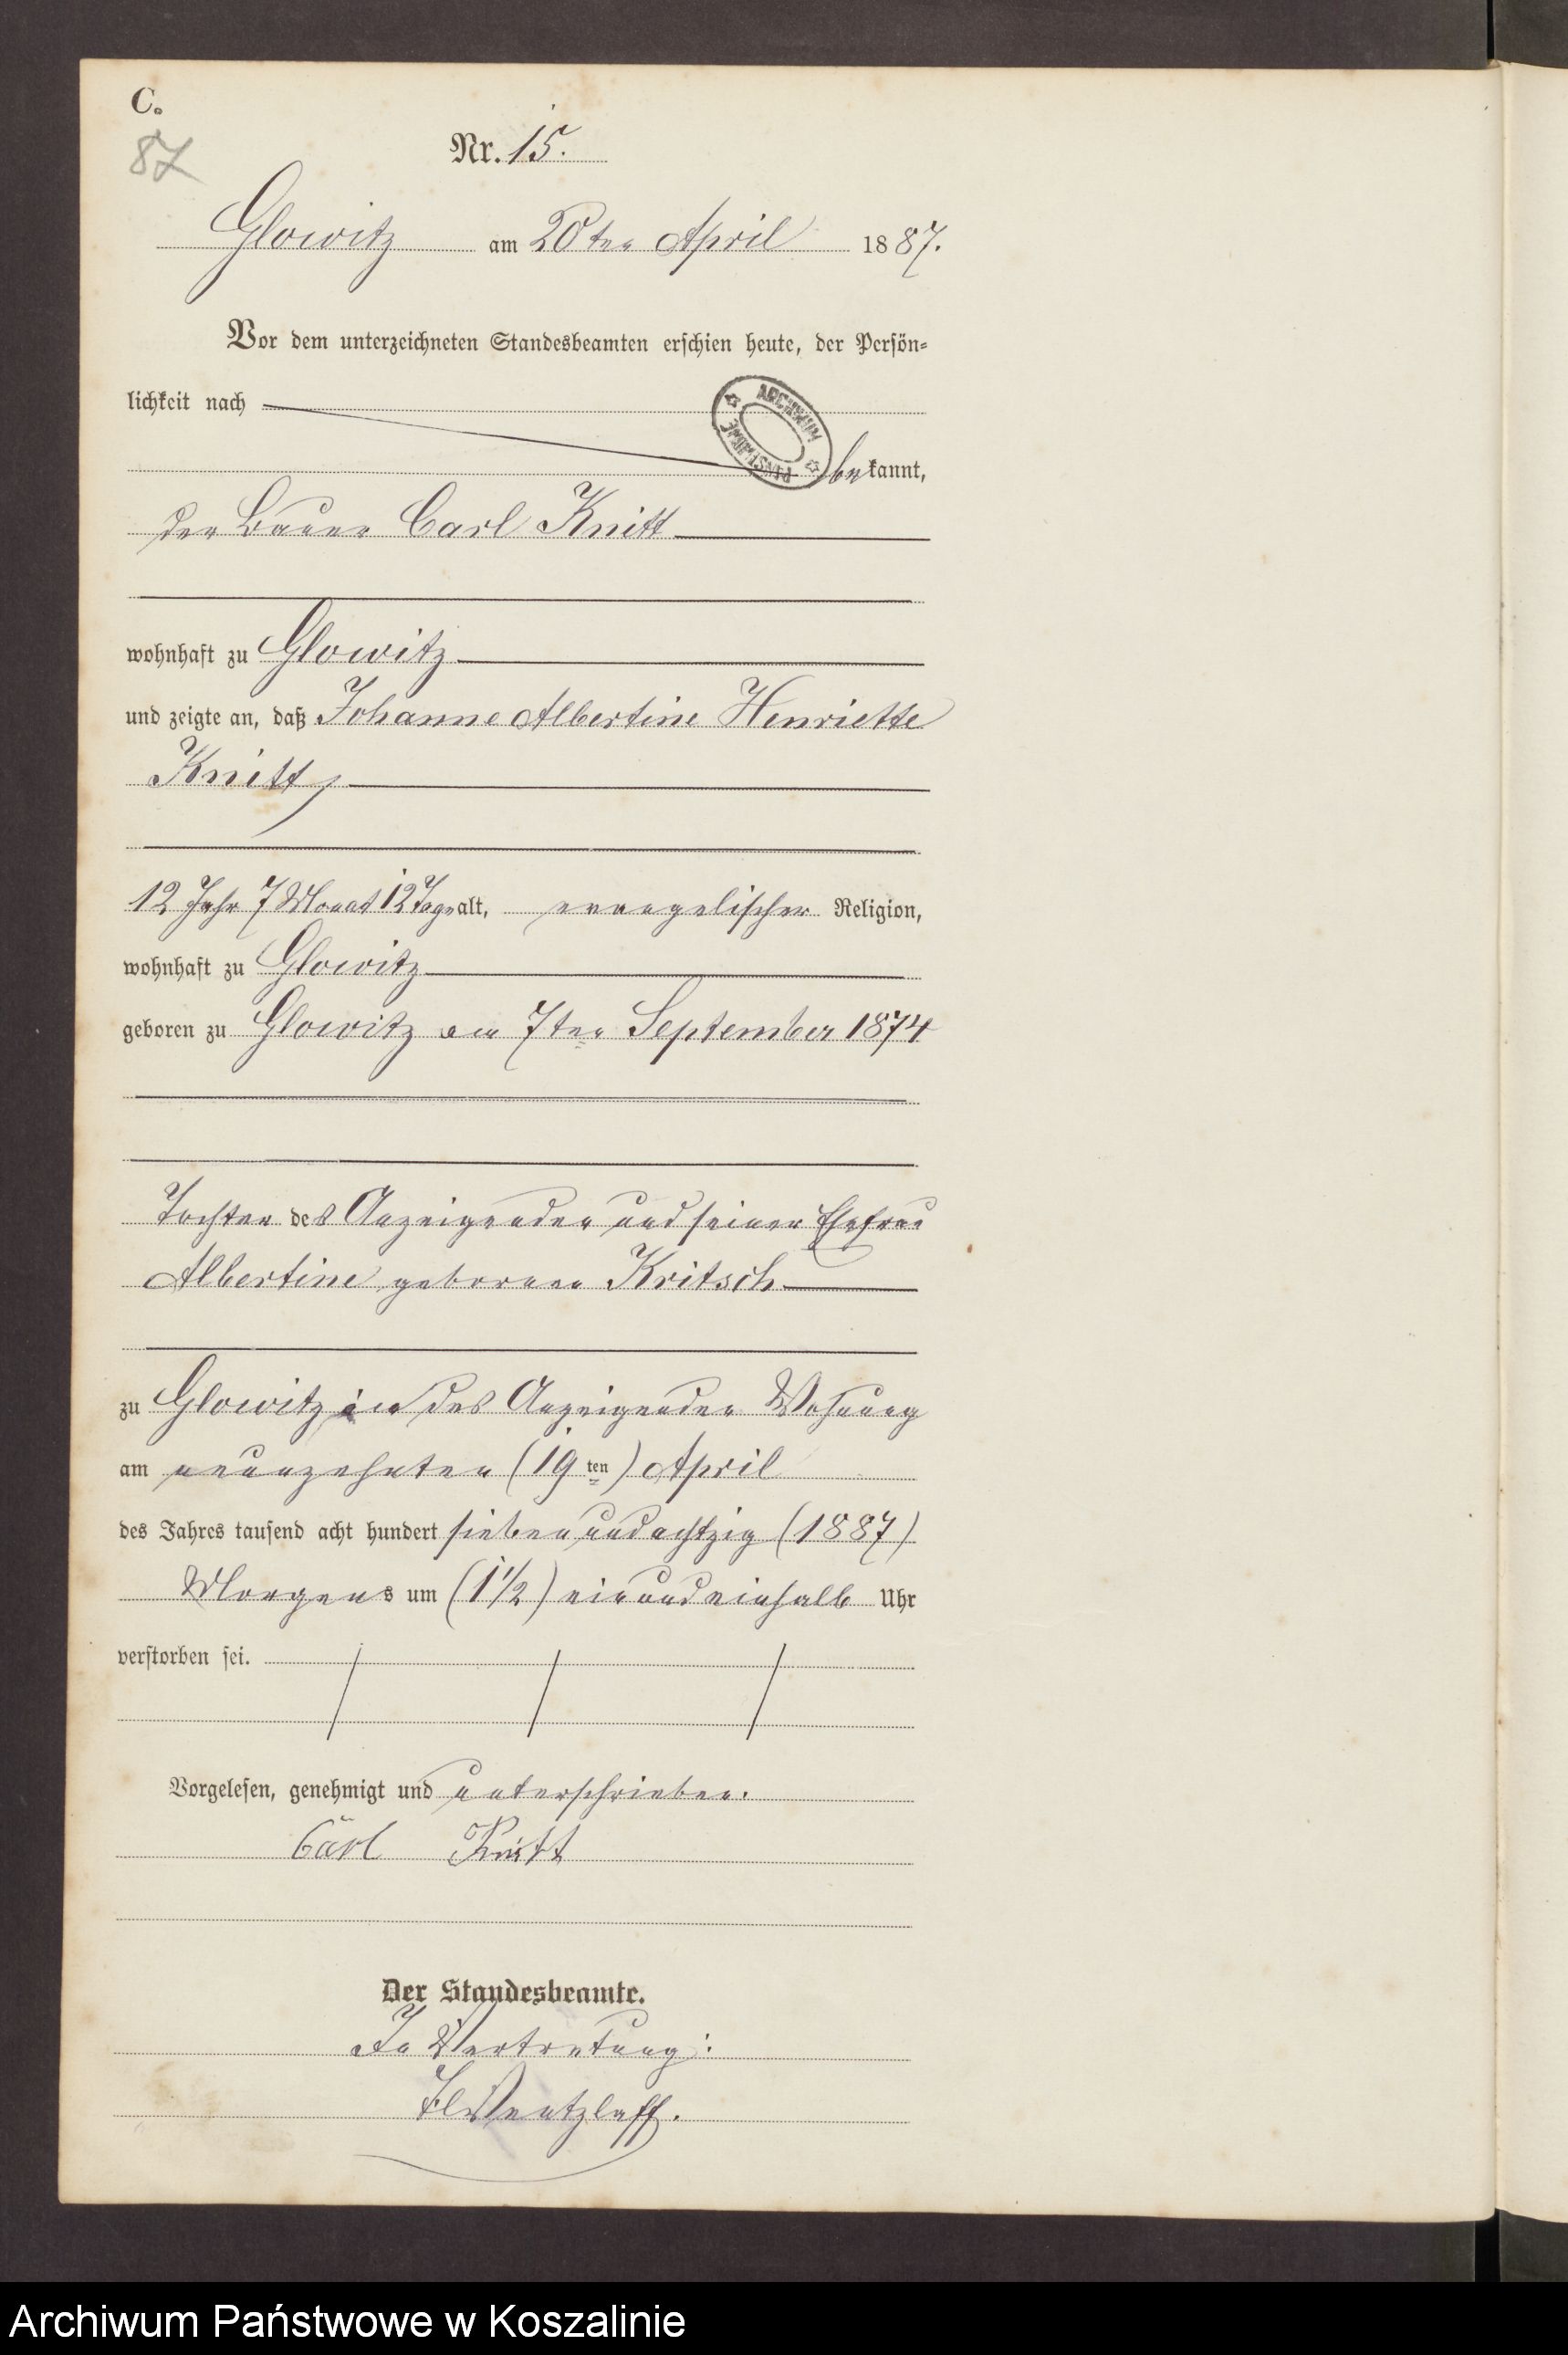 C.
87
Nr. 15.
Glowitz am 20ten April 1887.
Vor dem unterzeichneten Standesbeamten erschien heute, der Persön-
lichkeit nach
ARCHIWUM PAŃSTWOWE
bekannt,
der Bauer Carl Knitt
wohnhaft zu Glowitz
und zeigte an, daß Johanne Albertine Henriette
Knitt,
12 Jahr 7 Monat 12 Tage alt, evangelischer Religion,
wohnhaft zu Glowitz
geboren zu Glowitz am 7ten September 1874
Tochter des Anzeigenden und seiner Ehefrau
Albertine geborenen Kritsch
zu Glowitz in des Anzeigenden Wohnung
am neunzehnten (19ten) April
des Jahres tausend acht hundert sieben und achtzig (1887)
Morgens um (1 1/2) ein und einhalb Uhr
verstorben sei.
Vorgelesen, genehmigt und unterschrieben.
Carl Knitt
Der Standesbeamte.
In Vertretung:
Wentzlaff.
Archiwum Państwowe w Koszalinie